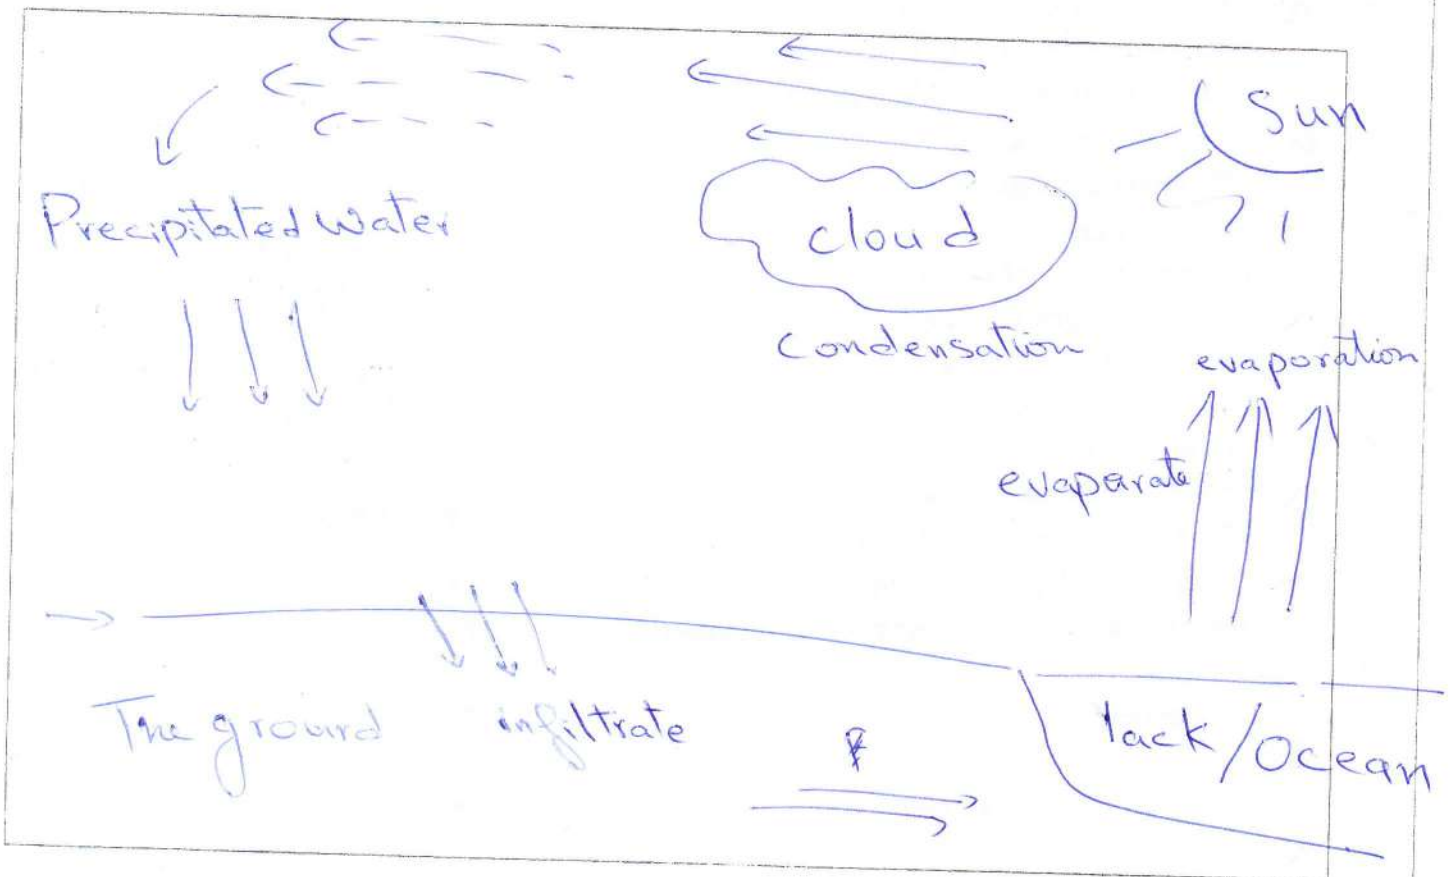 Sun
Precipitated water
cloud
Condensation
evaporation
evaparate
The ground infiltrate
lack/Ocean